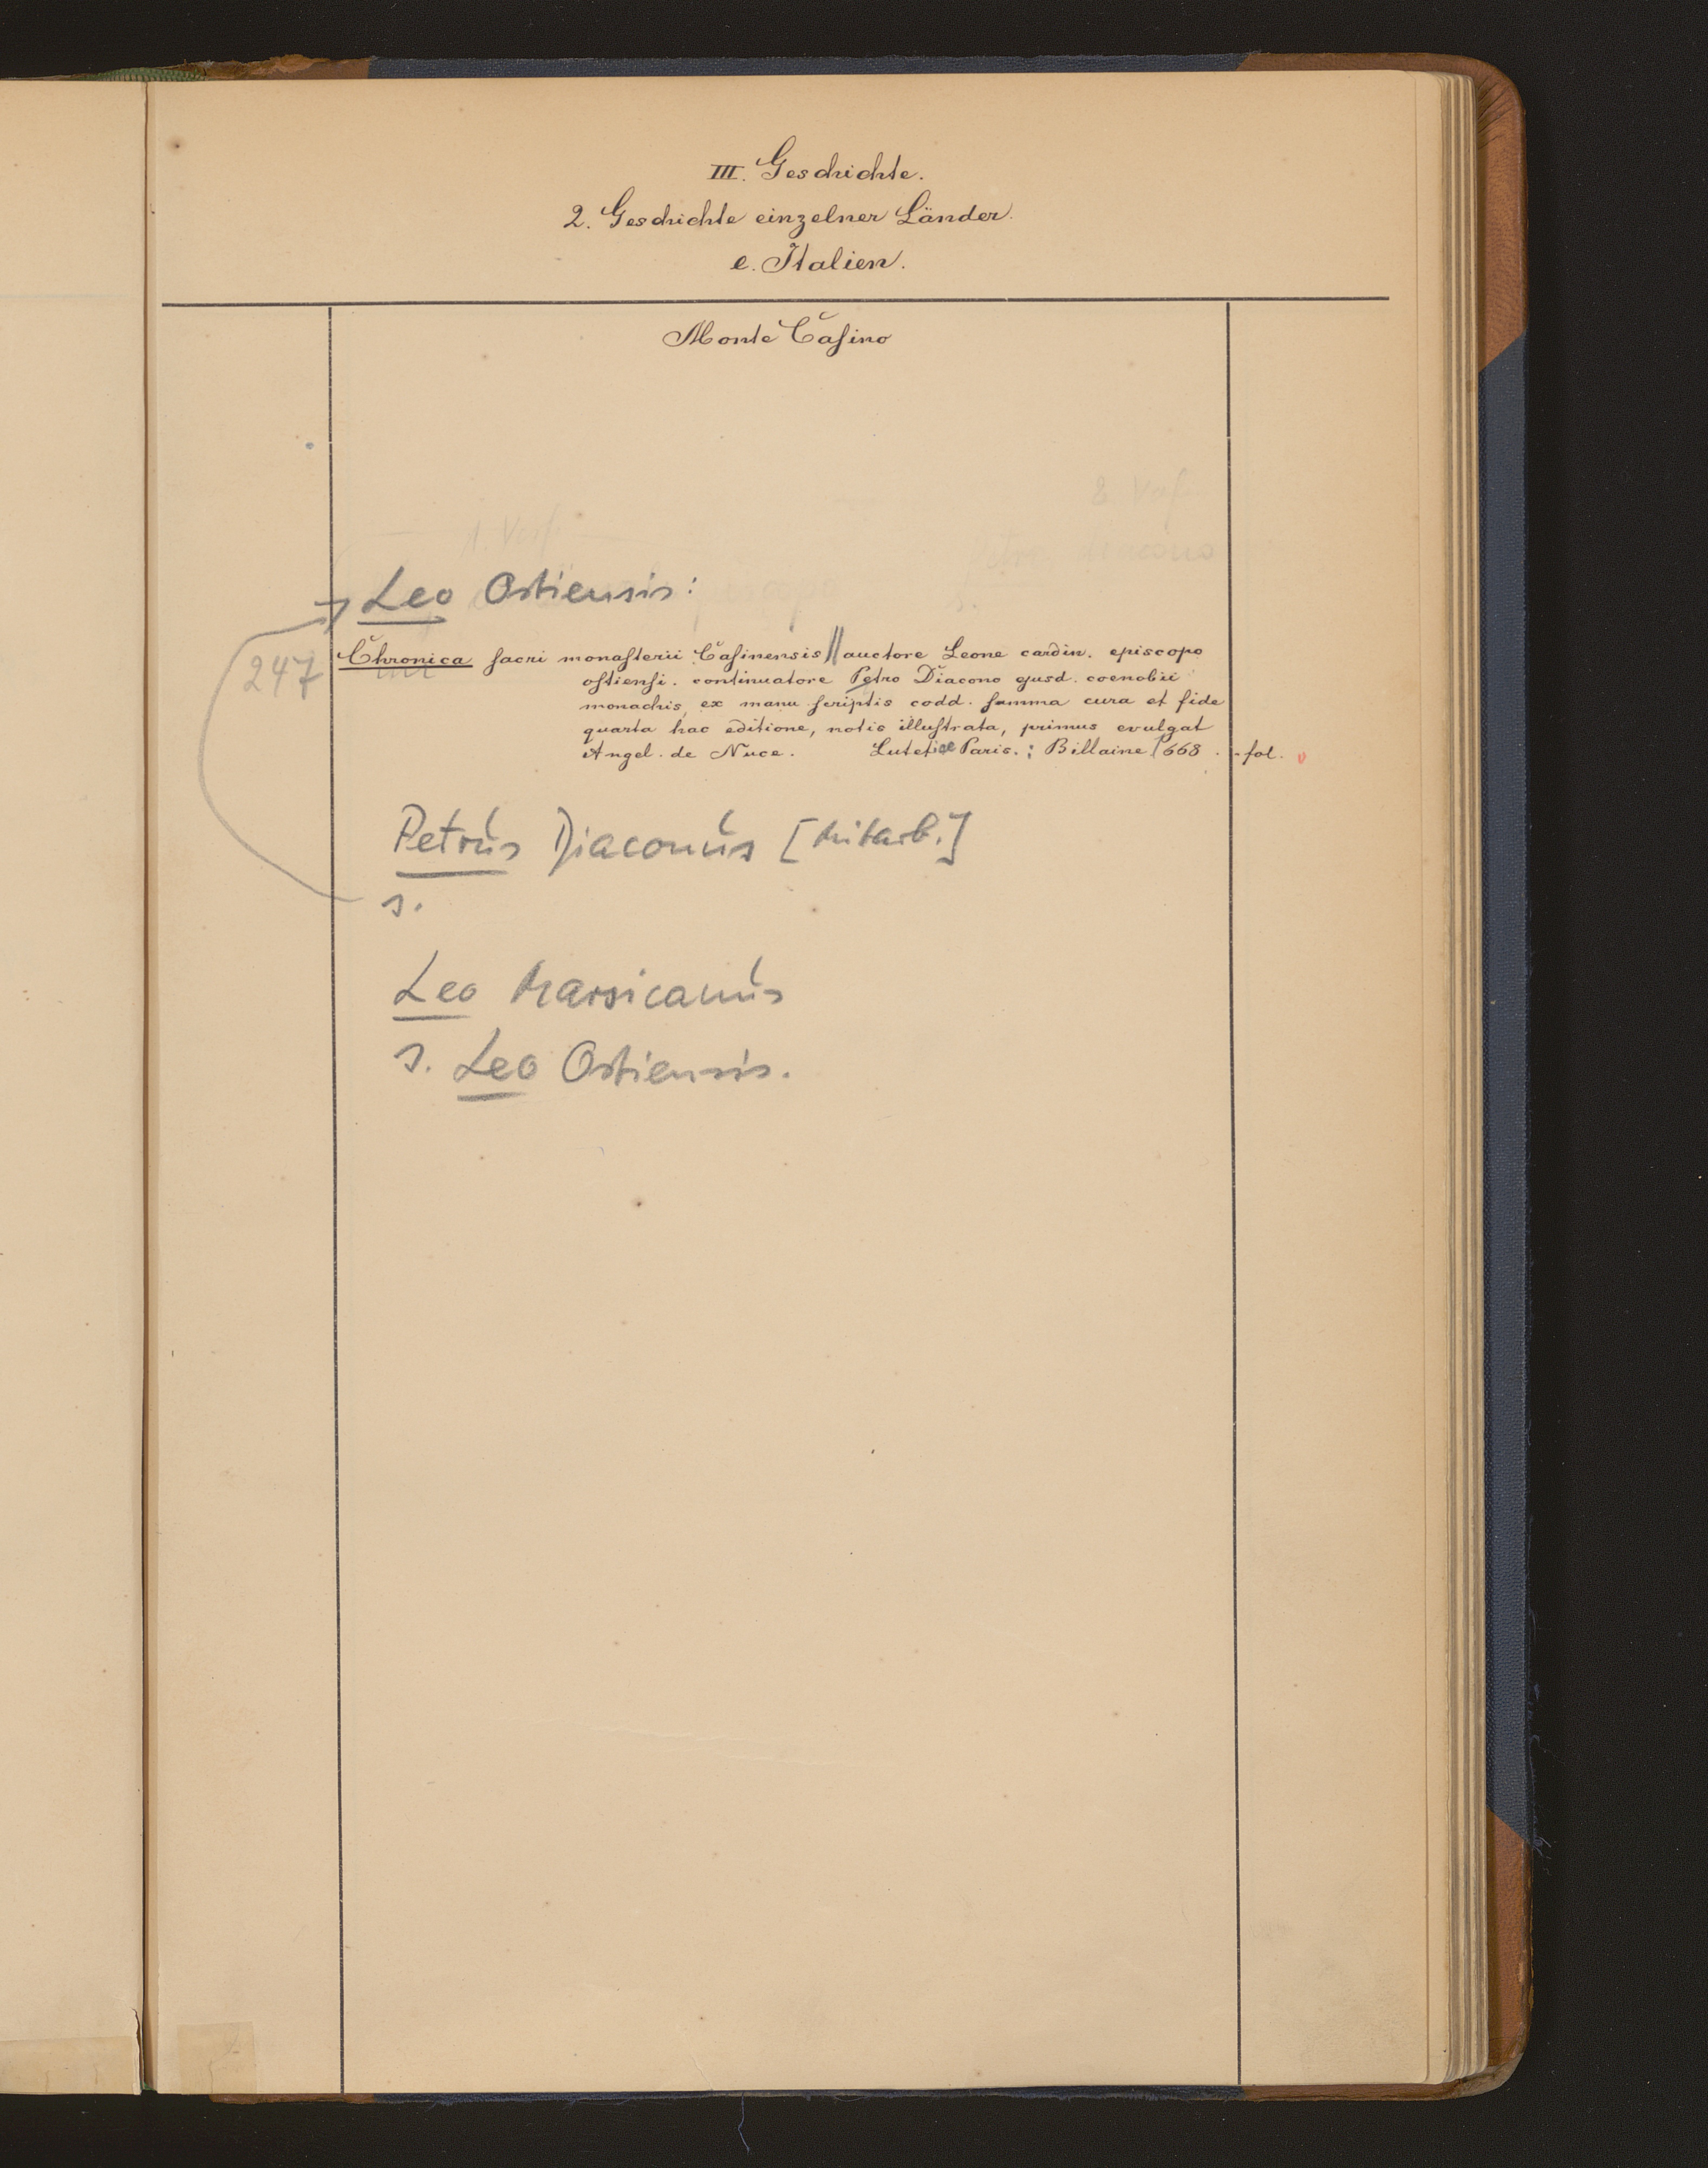 III. Geschichte.
2. Geschichte einzelner Länder.
e. Italien.
Monte Casino
Leo Ostiensis:
247
Chronica sacri monasterii Casinensis || auctore Leone cardin. episcopo
ostiensi. continuatore Petro Diacono ejusd. coenobii
monachis, ex manu scriptis codd. summa cura et fide
quarta hac editione, notis illustrata, primus evulgat
Angel. de Nuce. Lutetiae Paris.: Billaine 1668. fol.
Petrus Diaconus [Mitarb.]
s.
Leo Marsicanus
s. Leo Ostiensis.